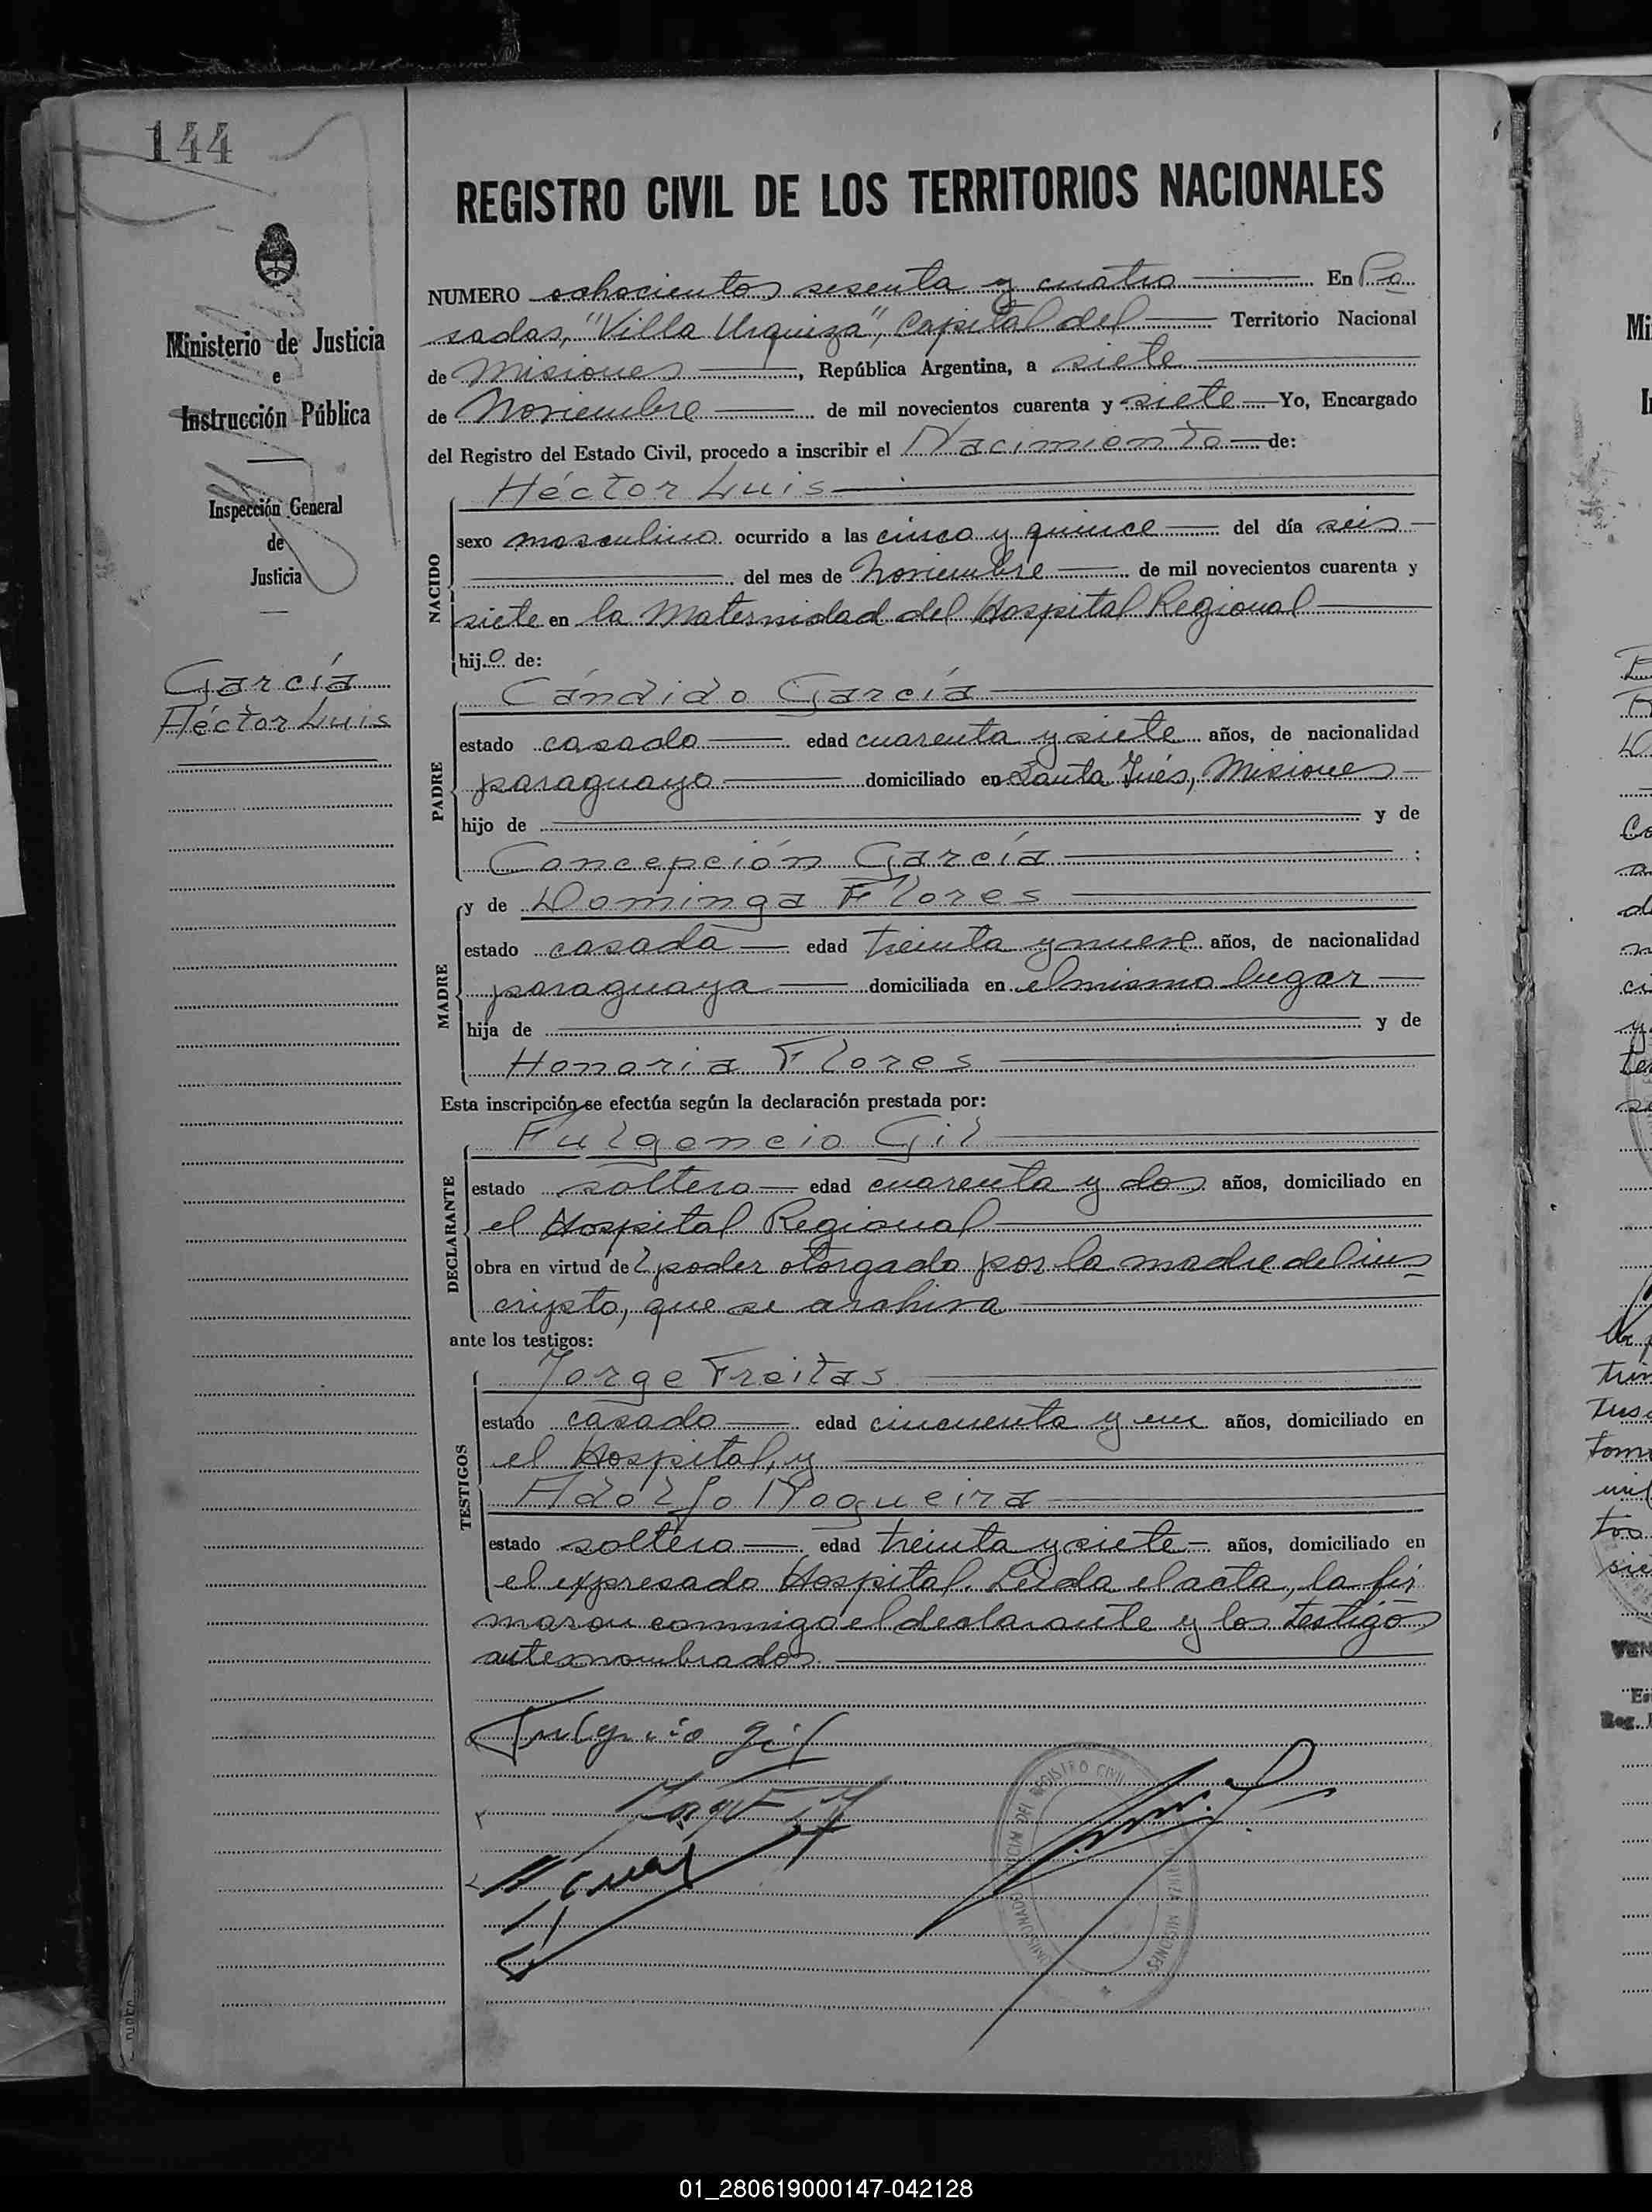 144
REGISTRO CIVIL DE LOS TERRITORIOS NACIONALES
Ministerio de Justicia
e
Instrucción Pública
Inspección General
de
Justicia
García
Héctor Luis
NUMERO ochocientos sesenta y cuatro En Po
sadas, "Villa Urquiza", Capital del Territorio Nacional
de Misiones, República Argentina, a siete
de Noviembre de mil novecientos cuarenta y siete Yo, Encargado
del Registro del Estado Civil, procedo a inscribir el Nacimiento de:
NACIDO
Héctor Luis
sexo masculino ocurrido a las cinco y quince del día seis
del mes de Noviembre de mil novecientos cuarenta y
siete en la Maternidad del Hospital Regional
hijo de:
PADRE
Cándido García
estado casado edad cuarenta y siete años, de nacionalidad
paraguayo domiciliado en Santa Inés, Misiones
hijo de y de
Concepción García ;
MADRE
y de Dominga Flores
estado casada edad treinta y nueve años, de nacionalidad
paraguaya domiciliada en el mismo lugar
hija de y de
Honoria Flores
Esta inscripción se efectúa según la declaración prestada por:
DECLARANTE
Fulgencio Gil
estado soltero edad cuarenta y dos años, domiciliado en
el Hospital Regional
obra en virtud del poder otorgado por la madre del ins
cripto, que se archiva
ante los testigos:
TESTIGOS
Jorge Freitas
estado casado edad cincuenta y un años, domiciliado en
el Hospital, y
Adolfo Nogueira
estado soltero edad treinta y siete años, domiciliado en
el expresado Hospital. Leída el acta, la fir
maron conmigo el declarante y los testigos
antesnombrados.
Fulgencio gil
DEL REGISTRO CIVIL
MISIONES
01_280619000147-042128